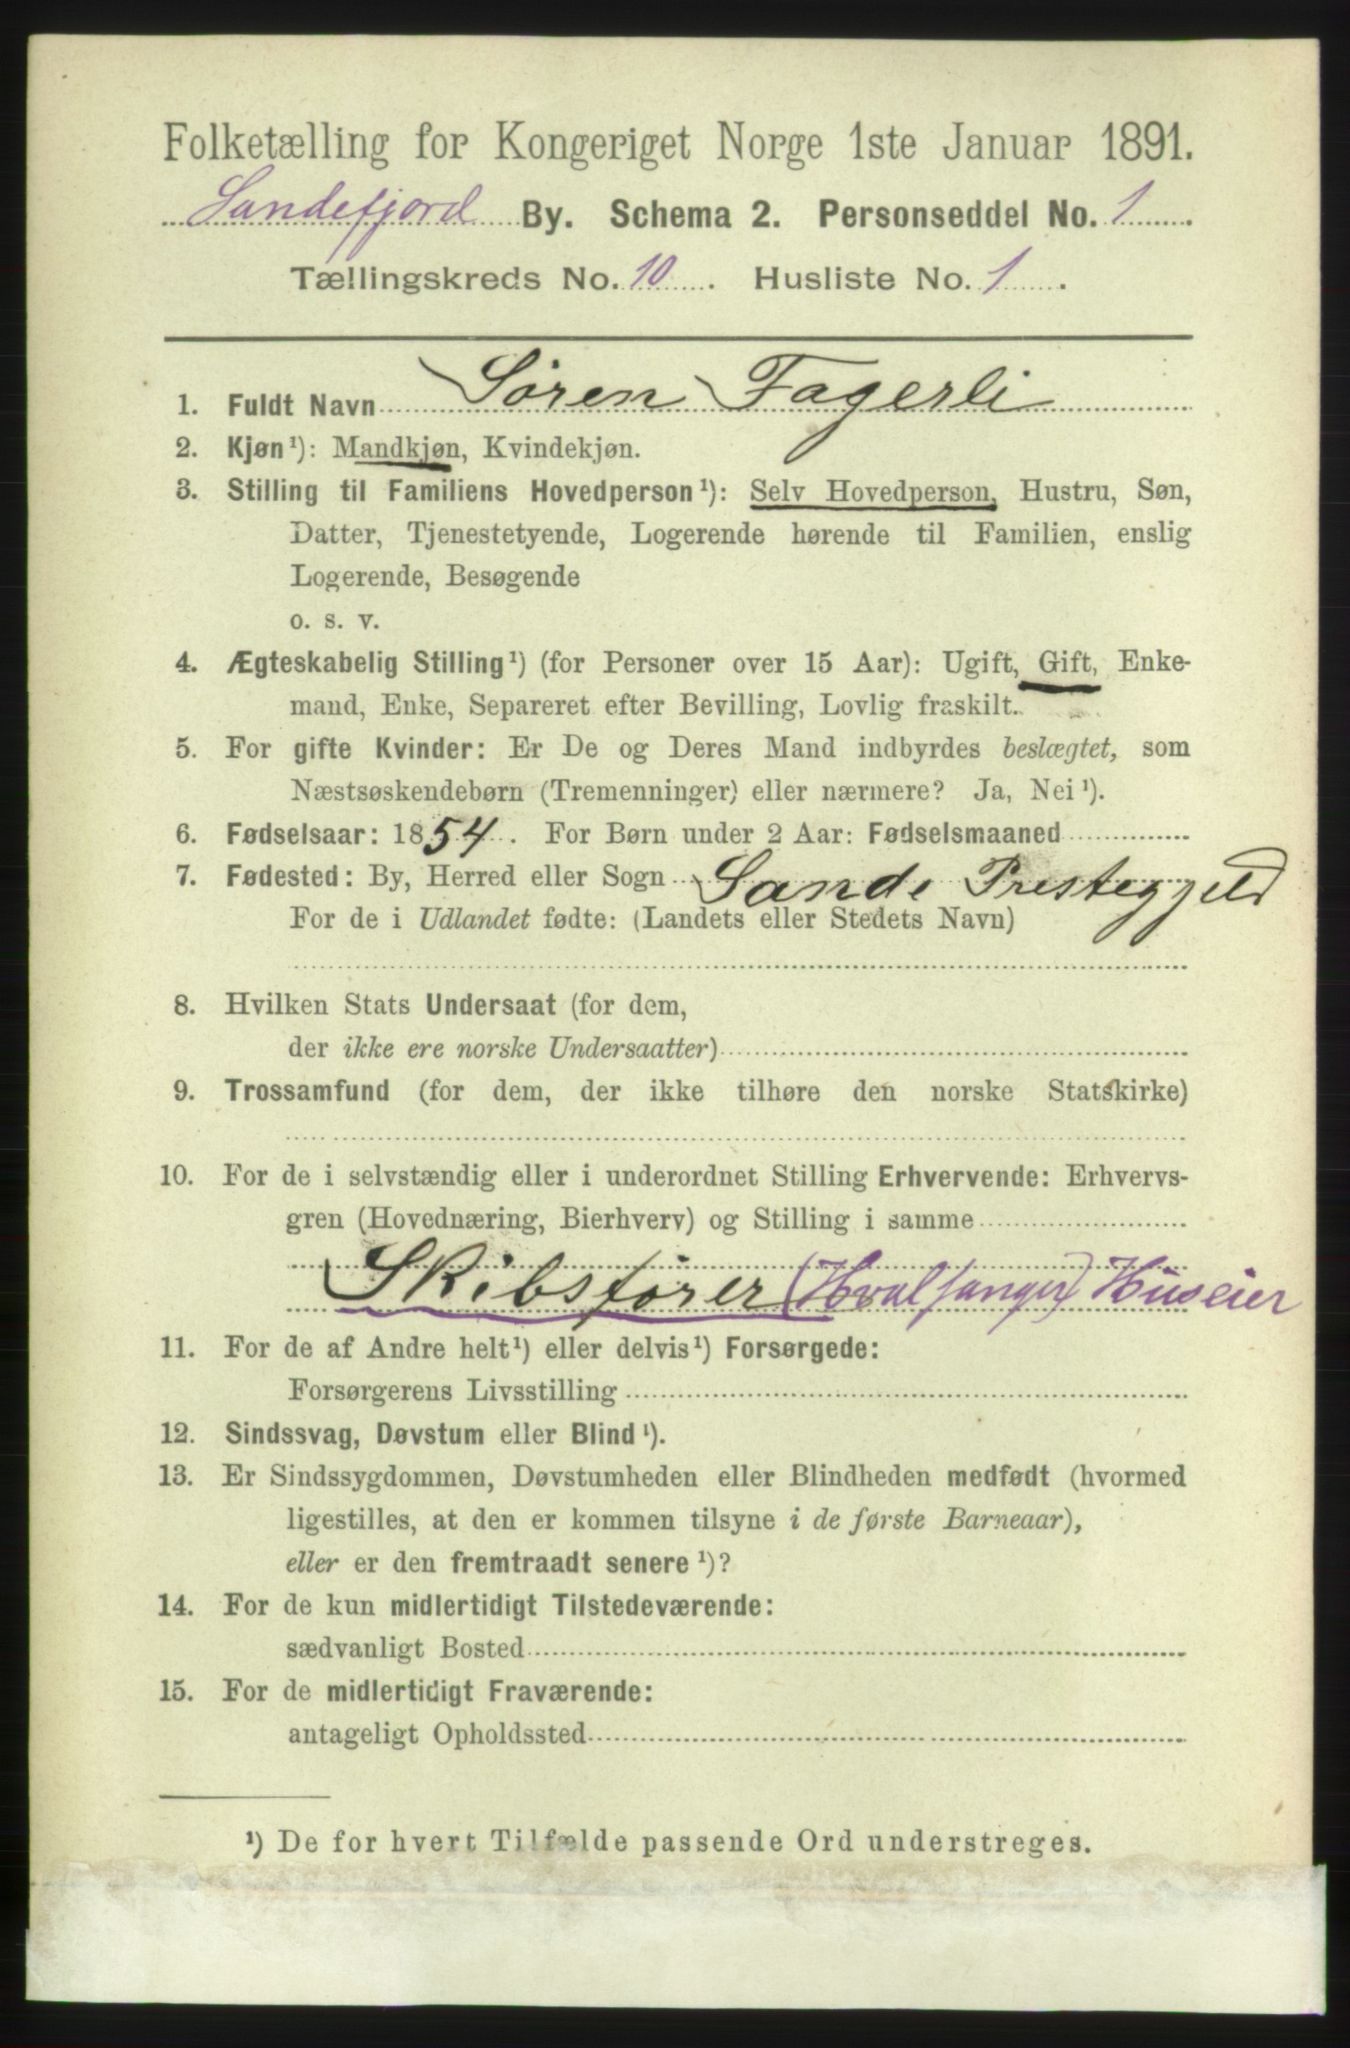 Folketælling for Kongeriget Norge 1ste Januar 1891.
Sandefjord By. Schema 2. Personseddel No. 1.
Tællingskreds No. 10. Husliste No. 1.
1. Fuldt Navn Søren Fagerli
2. Kjøn¹): Mandkjøn, Kvindekjøn.
3. Stilling til Familiens Hovedperson¹): Selv Hovedperson, Hustru, Søn,
Datter, Tjenestetyende, Logerende hørende til Familien, enslig
Logerende, Besøgende
o. s. v.
4. Ægteskabelig Stilling¹) (for Personer over 15 Aar): Ugift, Gift, Enke-
mand, Enke, Separeret efter Bevilling, Lovlig fraskilt.
5. For gifte Kvinder: Er De og Deres Mand indbyrdes beslægtet, som
Næstsøskendebørn (Tremenninger) eller nærmere? Ja, Nei¹).
6. Fødselsaar: 1854. For Børn under 2 Aar: Fødselsmaaned
7. Fødested: By, Herred eller Sogn Sande Prestegjeld
For de i Udlandet fødte: (Landets eller Stedets Navn)
8. Hvilken Stats Undersaat (for dem,
der ikke ere norske Undersaatter)
9. Trossamfund (for dem, der ikke tilhøre den norske Statskirke)
10. For de i selvstændig eller i underordnet Stilling Erhvervende: Erhvervs-
gren (Hovednæring, Bierhverv) og Stilling i samme
Skibsfører (Hvalfanger) Huseier
11. For de af Andre helt¹) eller delvis¹) Forsørgede:
Forsørgerens Livsstilling
12. Sindssvag, Døvstum eller Blind¹).
13. Er Sindssygdommen, Døvstumheden eller Blindheden medfødt (hvormed
ligestilles, at den er kommen tilsyne i de første Barneaar),
eller er den fremtraadt senere¹)?
14. For de kun midlertidigt Tilstedeværende:
sædvanligt Bosted
15. For de midlertidigt Fraværende:
antageligt Opholdssted
¹) De for hvert Tilfælde passende Ord understreges.